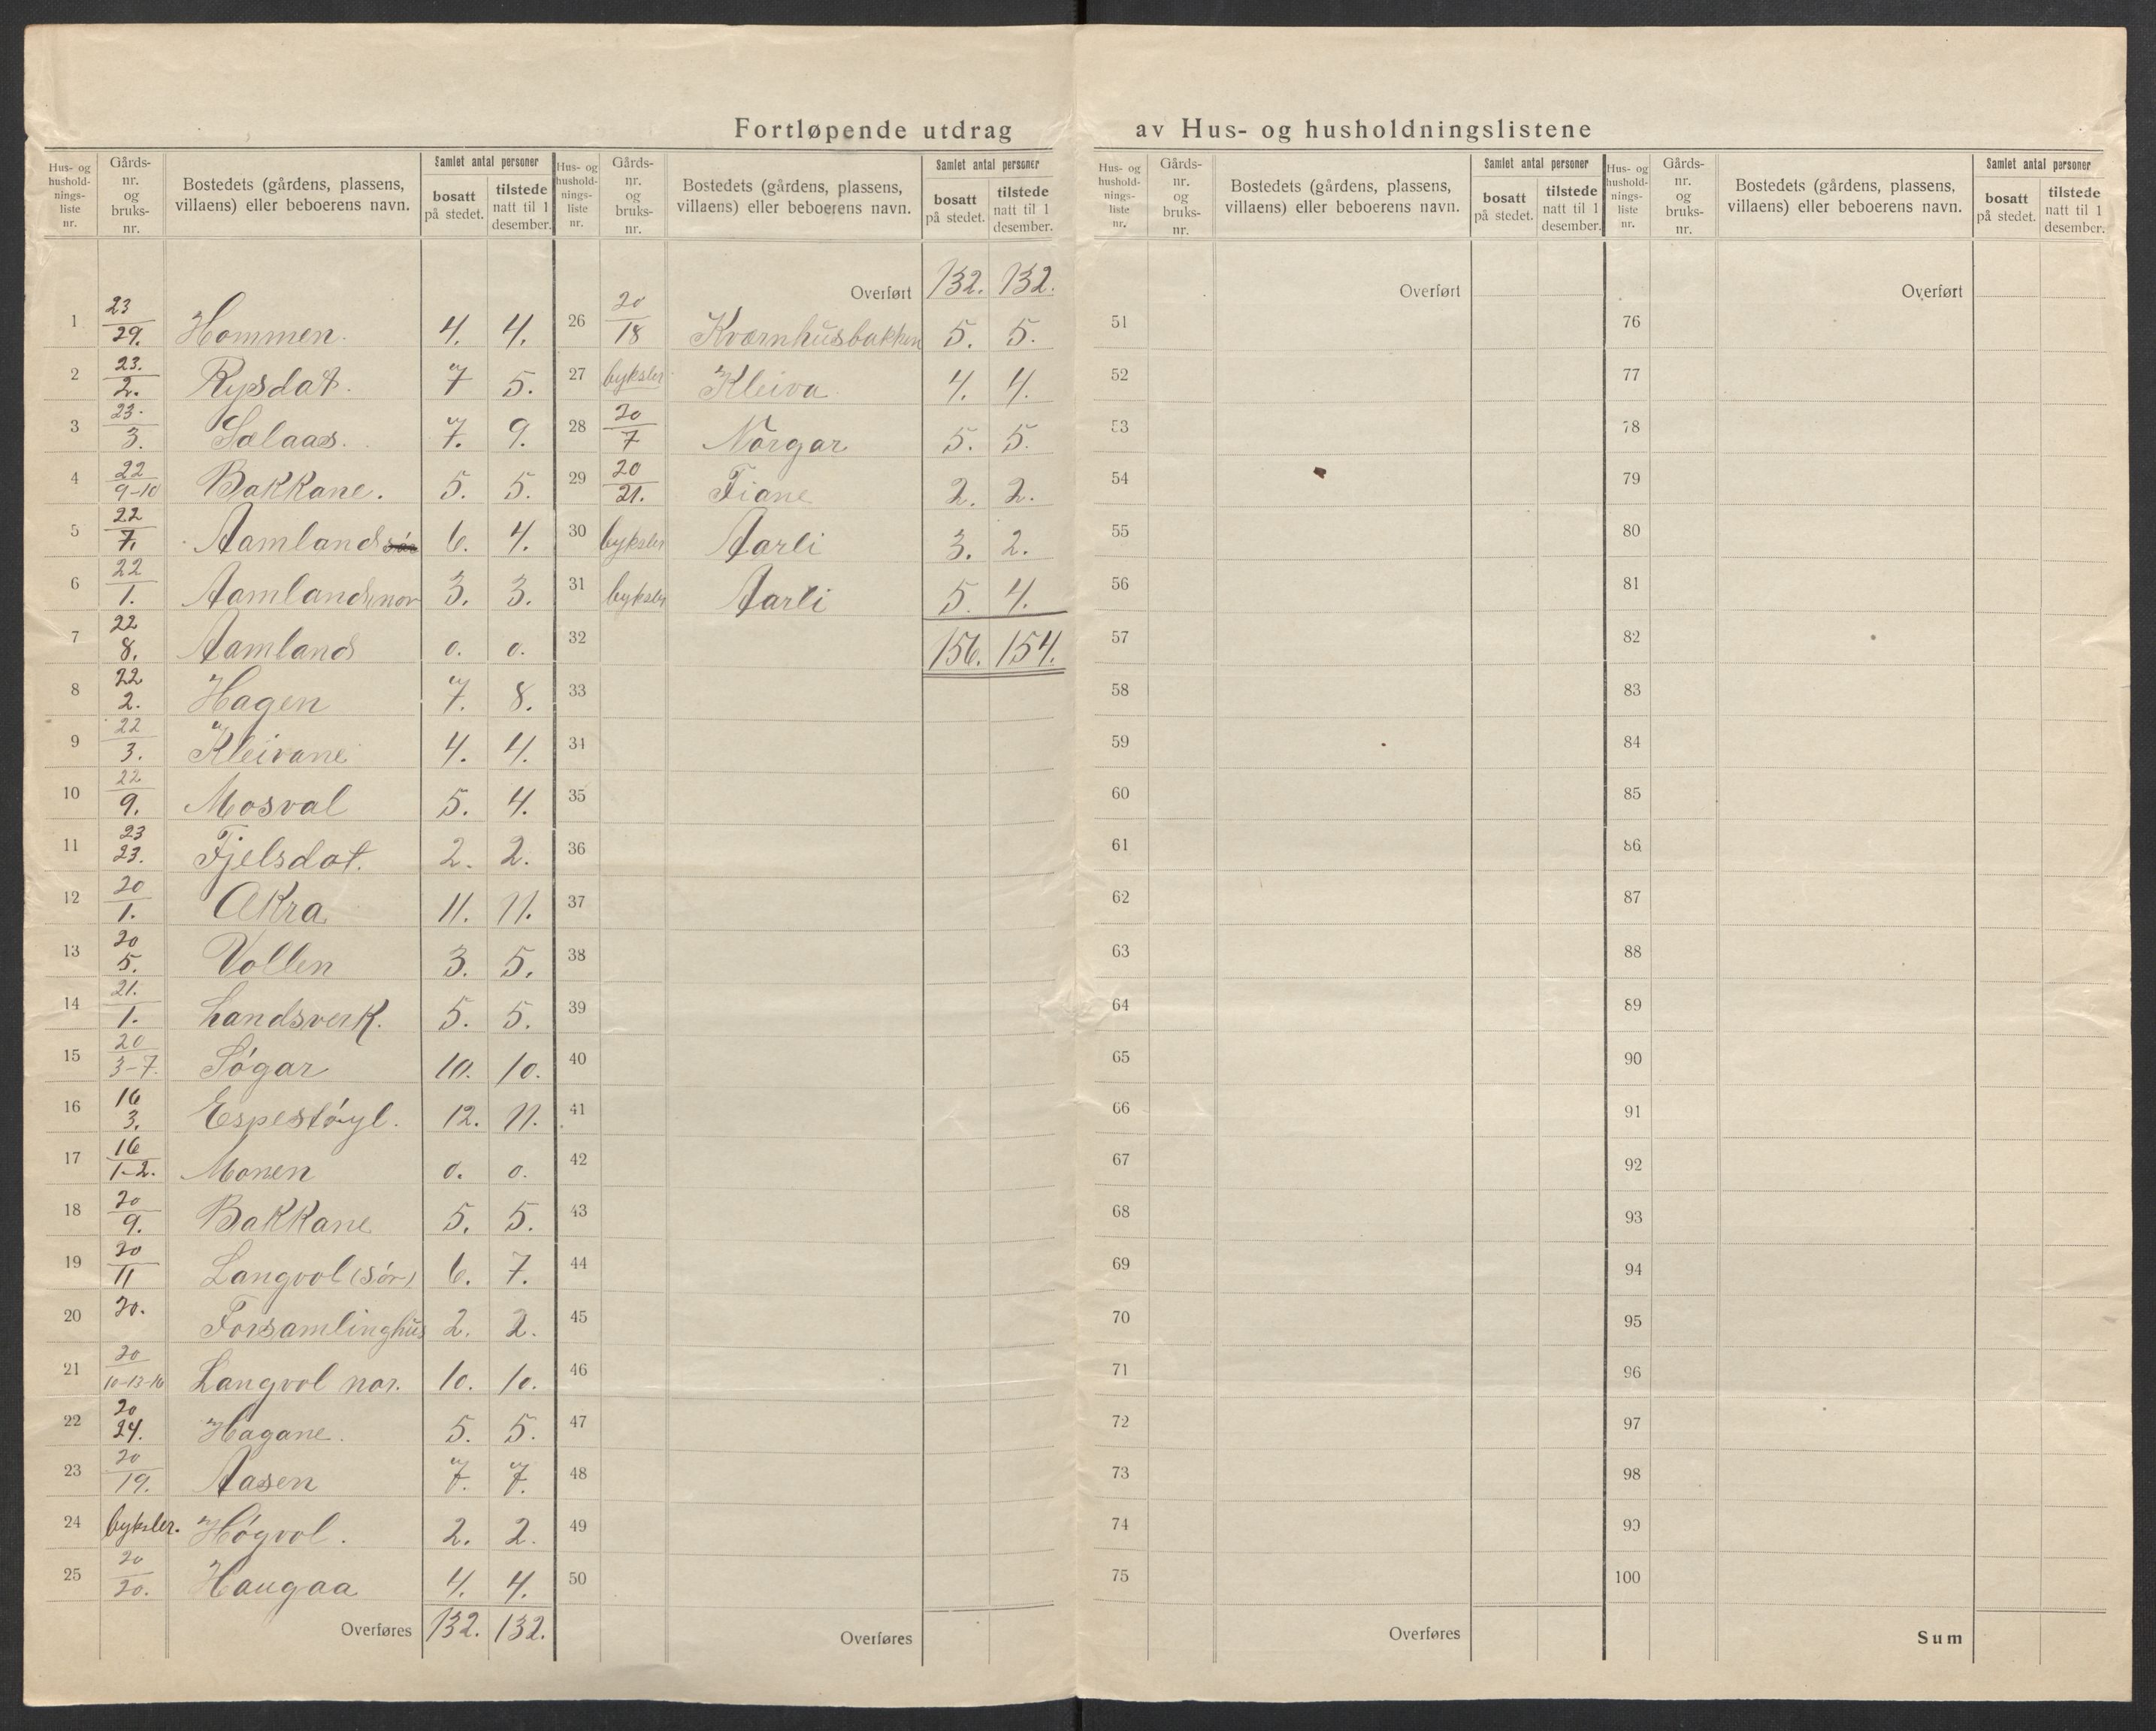 Fortløpende utdrag av Hus- og husholdningslistene
Hus- og husholdnings-liste nr. | Gårds-nr. og bruks-nr. | Bostedets (gårdens, plassens, villaens) eller beboerens navn. | Samlet antal personer bosatt på stedet. | tilstede natt til 1 desember.
1 23/29. Hommen. 4. 4.
2 23./2. Rysdat. 7 5.
3 23./3. Sælaas. 7. 9.
4 22/9-10 Bakkane. 5. 5.
5 22/7. Aamland sør 6. 4.
6 22/1. Aamland, nor 3. 3.
7 22 8. Aamland 0. 0.
8 22 2. Hagen 7. 8.
9 22/3. Kleivane 4. 4.
10 22/9. Mosval 5. 4.
11 23 23. Fjelsdat. 2. 2.
12 20/1. Økra 11. 11.
13 20 5. Vollen 3. 5.
14 21./1. Landsverk. 5. 5.
15 20/3-7. Søgar 10. 10.
16 16 3. Espestøyl. 12. 11.
17 16/1-2. Monen 0. 0.
18 20/9. Bakkane 5. 5.
19 20/11 Langvol (sør) 6. 7.
20 20. Forsamlinghus 2. 2.
21 20/10-13-16 Langvol nor. 10. 10.
22 20 24. Hagane. 5. 5.
23 20/19. Aasen 7. 7.
24 byksler. Høgvol. 2. 2.
25 20/20. Haugaa 4. 4.
Overføres 132. 132.
Hus- og husholdnings-liste nr. | Gårds-nr. og bruks-nr. | Bostedets (gårdens, plassens, villaens) eller beboerens navn. | Samlet antal personer bosatt på stedet. | tilstede natt til 1 desember.
Overført 132. 132.
26 20/18 Kværnhusbakken 5. 5.
27 byksler Kleiva 4. 4.
28 20/7 Norgar 5. 5.
29 20/21. Tiane 2. 2.
30 byksler Aarli 3. 2.
31 byksler Aarli 5. 4.
32 156. 154.
33
34
35
36
37
38
39
40
41
42
43
44
45
46
47
48
49
50
Overføres
Hus- og husholdnings-liste nr. | Gårds-nr. og bruks-nr. | Bostedets (gårdens, plassens, villaens) eller beboerens navn. | Samlet antal personer bosatt på stedet. | tilstede natt til 1 desember.
Overført
51
52
53
54
55
56
57
58
59
60
61
62
63
64
65
66
67
68
69
70
71
72
73
74
75
Overføres
Hus- og husholdnings-liste nr. | Gårds-nr. og bruks-nr. | Bostedets (gårdens, plassens, villaens) eller beboerens navn. | Samlet antal personer bosatt på stedet. | tilstede natt til 1 desember.
Overført
76
77
78
79
80
81
82
83
84
85
86
87
88
89
90
91
92
93
94
95
96
97
98
99
100
Sum